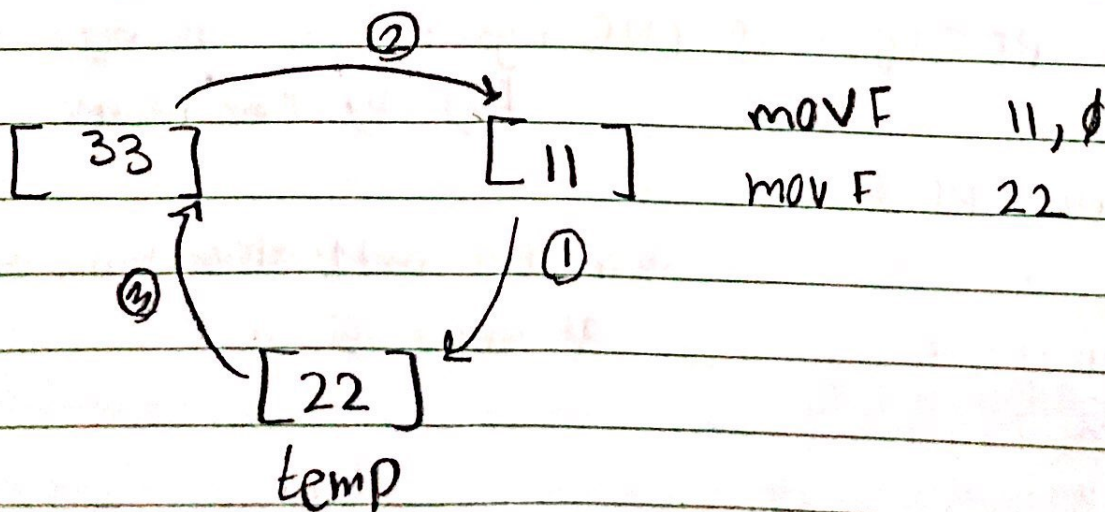 ②
[ 33 ] [ 11 ] movF 11, ∅
③ ① movF 22
[ 22 ]
temp